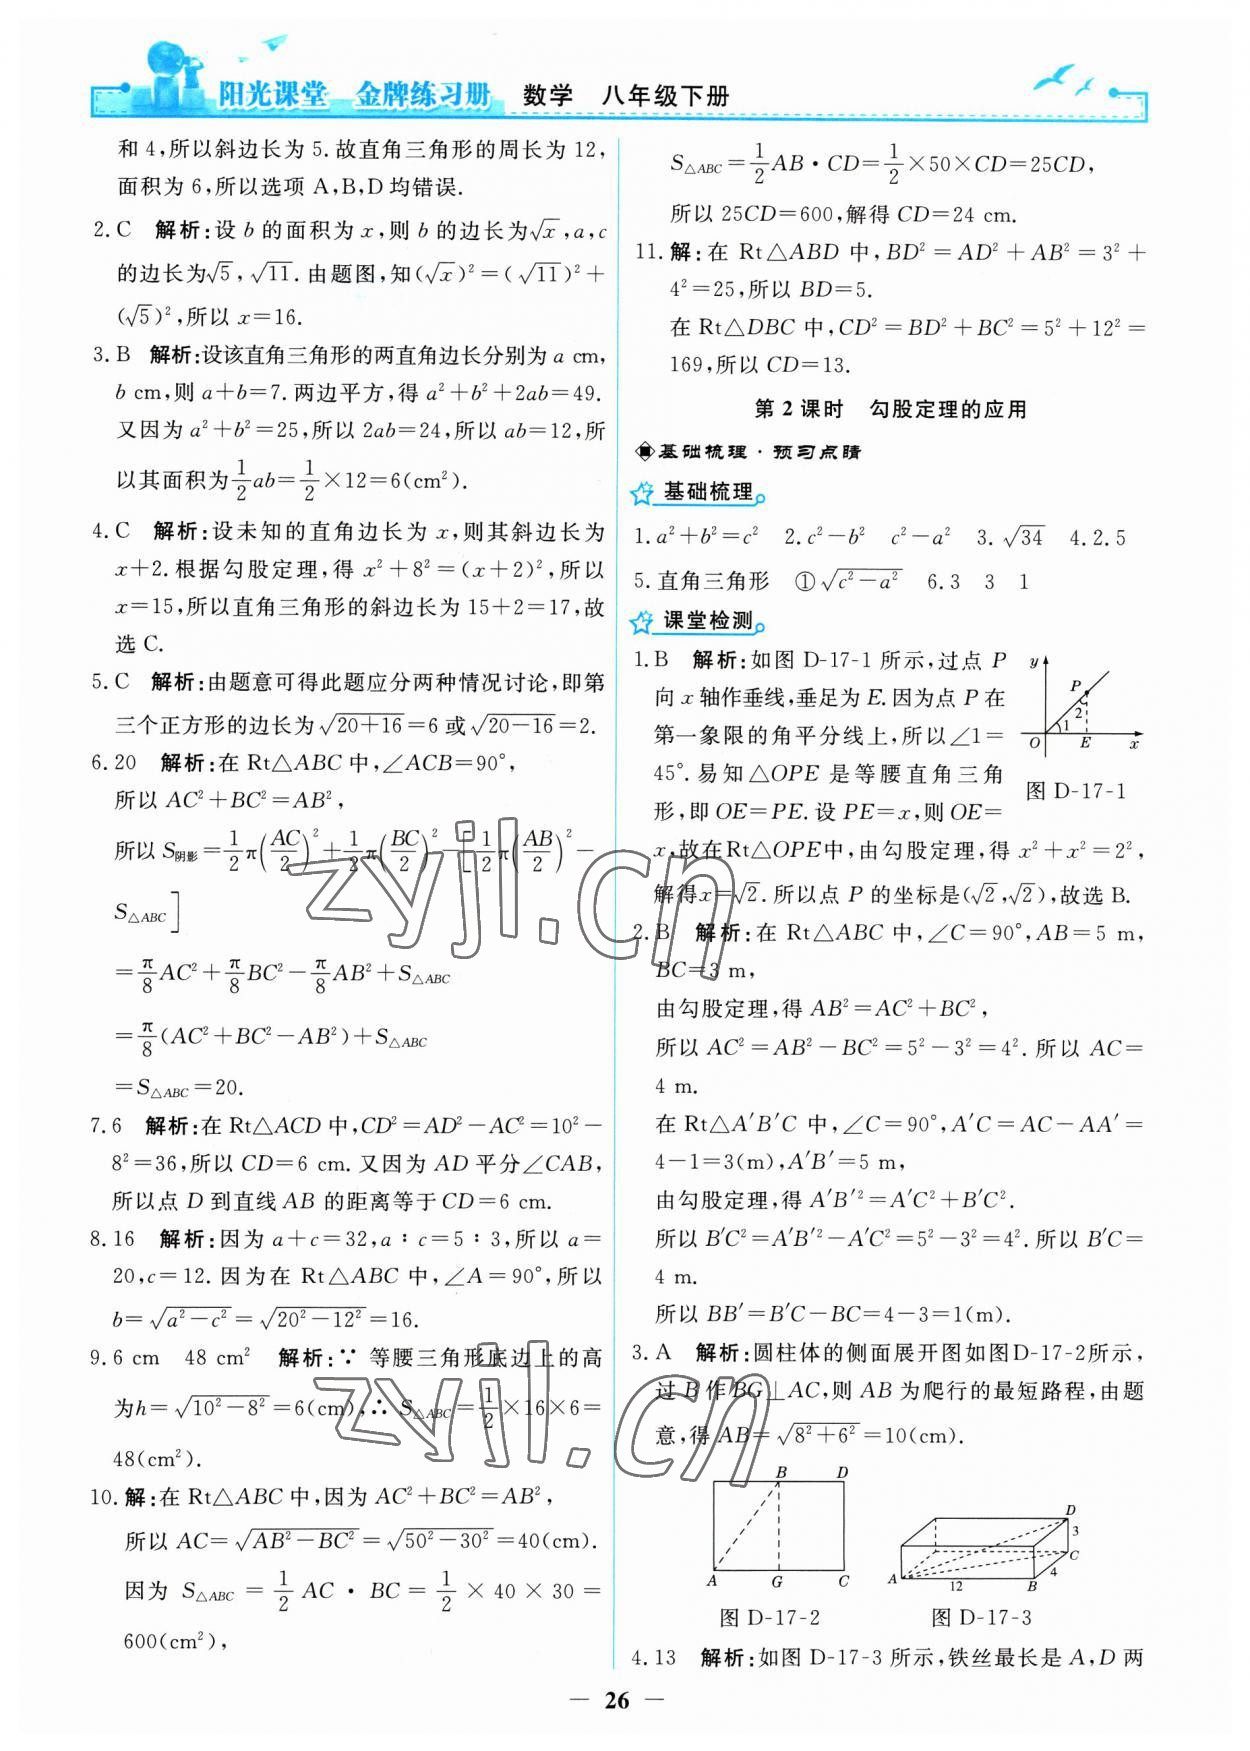 阳光课堂 金牌练习册 数学 八年级下册
和 4,所以斜边长为 5.故直角三角形的周长为 12,
面积为 6,所以选项 A,B,D 均错误.
2.C 解析:设 b 的面积为 x,则 b 的边长为√x,a,c
的边长为√5,√11.由题图,知(√x)²=(√11)²+
(√5)²,所以 x=16.
3.B 解析:设该直角三角形的两直角边长分别为 a cm,
b cm,则 a+b=7.两边平方,得 a²+b²+2ab=49.
又因为 a²+b²=25,所以 2ab=24,所以 ab=12,所
以其面积为1/2ab=1/2×12=6(cm²).
4.C 解析:设未知的直角边长为 x,则其斜边长为
x+2.根据勾股定理,得 x²+8²=(x+2)²,所以
x=15,所以直角三角形的斜边长为 15+2=17,故
选 C.
5.C 解析:由题意可得此题应分两种情况讨论,即第
三个正方形的边长为√(20+16)=6或√(20-16)=2.
6.20 解析:在 Rt△ABC 中,∠ACB=90°,
所以 AC²+BC²=AB²,
所以 S阴影=1/2π(AC/2)²+1/2π(BC/2)²-[1/2π(AB/2)²-
S△ABC]
=π/8AC²+π/8BC²-π/8AB²+S△ABC
=π/8(AC²+BC²-AB²)+S△ABC
=S△ABC=20.
7.6 解析:在 Rt△ACD 中,CD²=AD²-AC²=10²-
8²=36,所以 CD=6 cm.又因为 AD 平分∠CAB,
所以点 D 到直线 AB 的距离等于 CD=6 cm.
8.16 解析:因为 a+c=32,a∶c=5∶3,所以 a=
20,c=12.因为在 Rt△ABC 中,∠A=90°,所以
b=√(a²-c²)=√(20²-12²)=16.
9.6 cm 48 cm² 解析:∵ 等腰三角形底边上的高
为h=√(10²-8²)=6(cm),∴ S△ABC=1/2×16×6=
48(cm²).
10.解:在 Rt△ABC 中,因为 AC²+BC²=AB²,
所以 AC=√(AB²-BC²)=√(50²-30²)=40(cm).
因为 S△ABC=1/2 AC·BC=1/2×40×30=
600(cm²),
S△ABC=1/2AB·CD=1/2×50×CD=25CD,
所以 25CD=600,解得 CD=24 cm.
11.解:在 Rt△ABD 中,BD²=AD²+AB²=3²+
4²=25,所以 BD=5.
在 Rt△DBC 中,CD²=BD²+BC²=5²+12²=
169,所以 CD=13.
第 2 课时 勾股定理的应用
基础梳理·预习点睛
基础梳理
1.a²+b²=c² 2.c²-b² c²-a² 3.√34 4.2.5
5.直角三角形 ①√(c²-a²) 6.3 3 1
课堂检测
1.B 解析:如图 D-17-1 所示,过点 P
向 x 轴作垂线,垂足为 E.因为点 P 在
第一象限的角平分线上,所以∠1=
45°.易知△OPE 是等腰直角三角
形,即 OE=PE.设 PE=x,则 OE=
y
P
2
1
O
E
x
图 D-17-1
x,故在Rt△OPE中,由勾股定理,得 x²+x²=2²,
解得x=√2.所以点 P 的坐标是(√2,√2),故选 B.
2.B 解析:在 Rt△ABC 中,∠C=90°,AB=5 m,
BC=3 m,
由勾股定理,得 AB²=AC²+BC²,
所以 AC²=AB²-BC²=5²-3²=4².所以 AC=
4 m.
在 Rt△A′B′C 中,∠C=90°,A′C=AC-AA′=
4-1=3(m),A′B′=5 m,
由勾股定理,得 A′B′²=A′C²+B′C².
所以 B′C²=A′B′²-A′C²=5²-3²=4².所以 B′C=
4 m.
所以 BB′=B′C-BC=4-3=1(m).
3.A 解析:圆柱体的侧面展开图如图D-17-2所示,
过 B 作 BG⊥AC,则 AB 为爬行的最短路程,由题
意,得 AB=√(8²+6²)=10(cm).
B D
A G C
图 D-17-2
D
3
C
4
A
12
B
图 D-17-3
4.13 解析:如图 D-17-3 所示,铁丝最长是 A,D 两
— 26 —
zyjl.cn
zyjl.cn